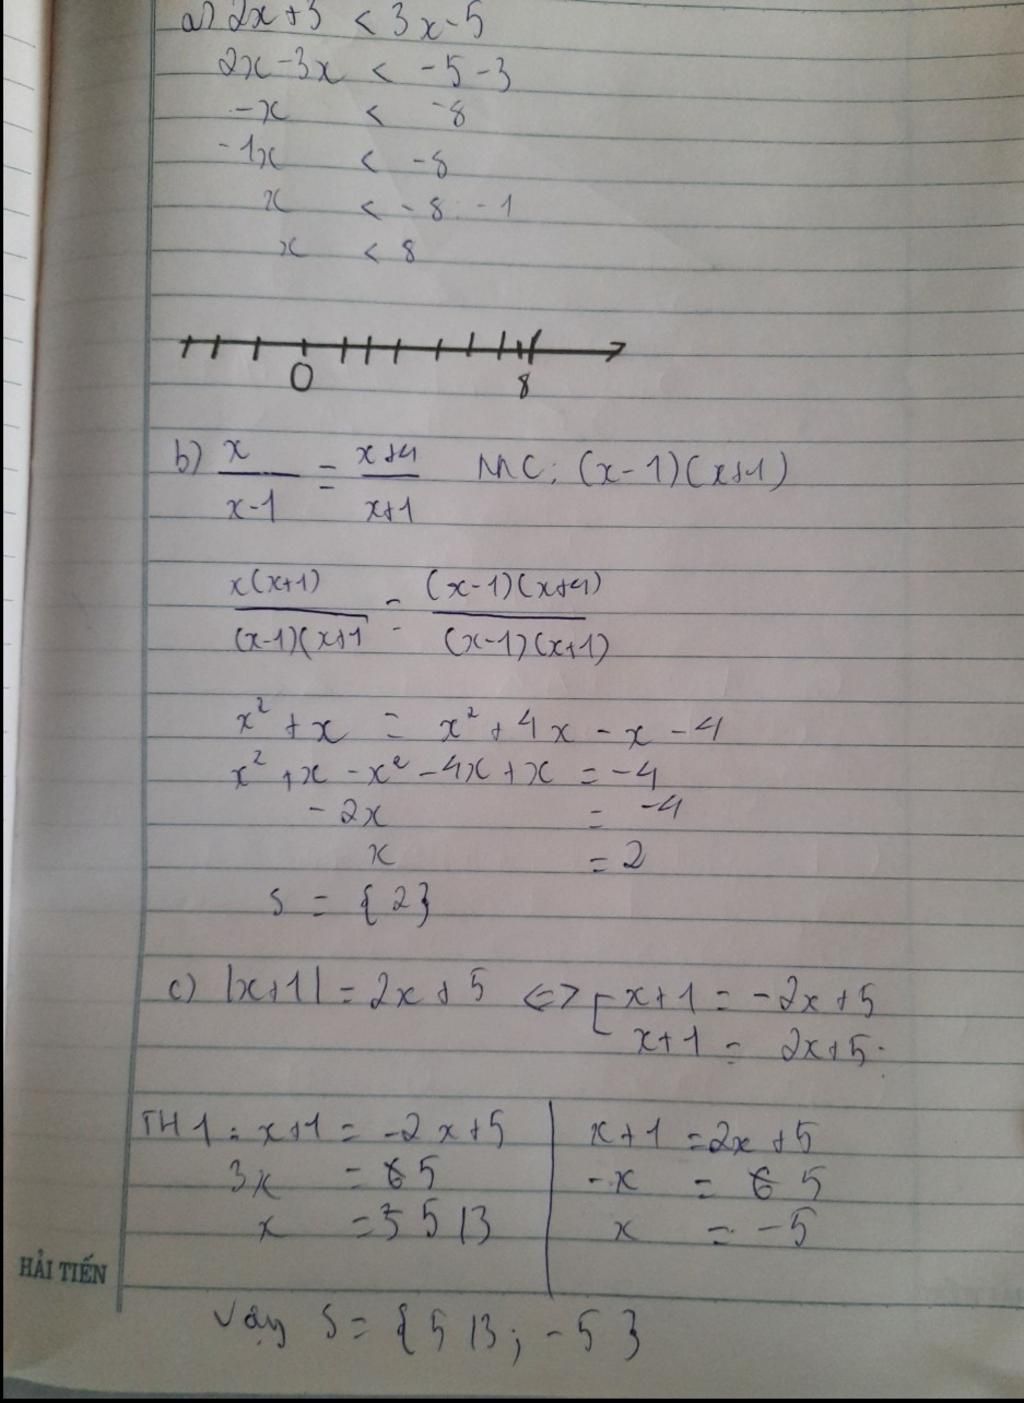 a) 2x+3 < 3x-5
2x-3x < -5-3
-x < -8
-1x < -8
x < -8 : -1
x < 8
0 8
b) x/x-1 = x+4/x+1 MC: (x-1)(x+1)
x(x+1)/(x-1)(x+1 = (x-1)(x+4)/(x-1)(x+1)
x² + x = x² + 4x - x - 4
x² + x - x² - 4x + x = -4
-2x = -4
x = 2
S = {2}
c) |x+1| = 2x+5 <=> [ x+1 = -2x+5
x+1 = 2x+5.
TH1: x+1 = -2x+5
3x = 5
x = 5/3
x+1 = 2x+5
-x = 5
x = -5
Vậy S = {5/3; -5}
HẢI TIẾN